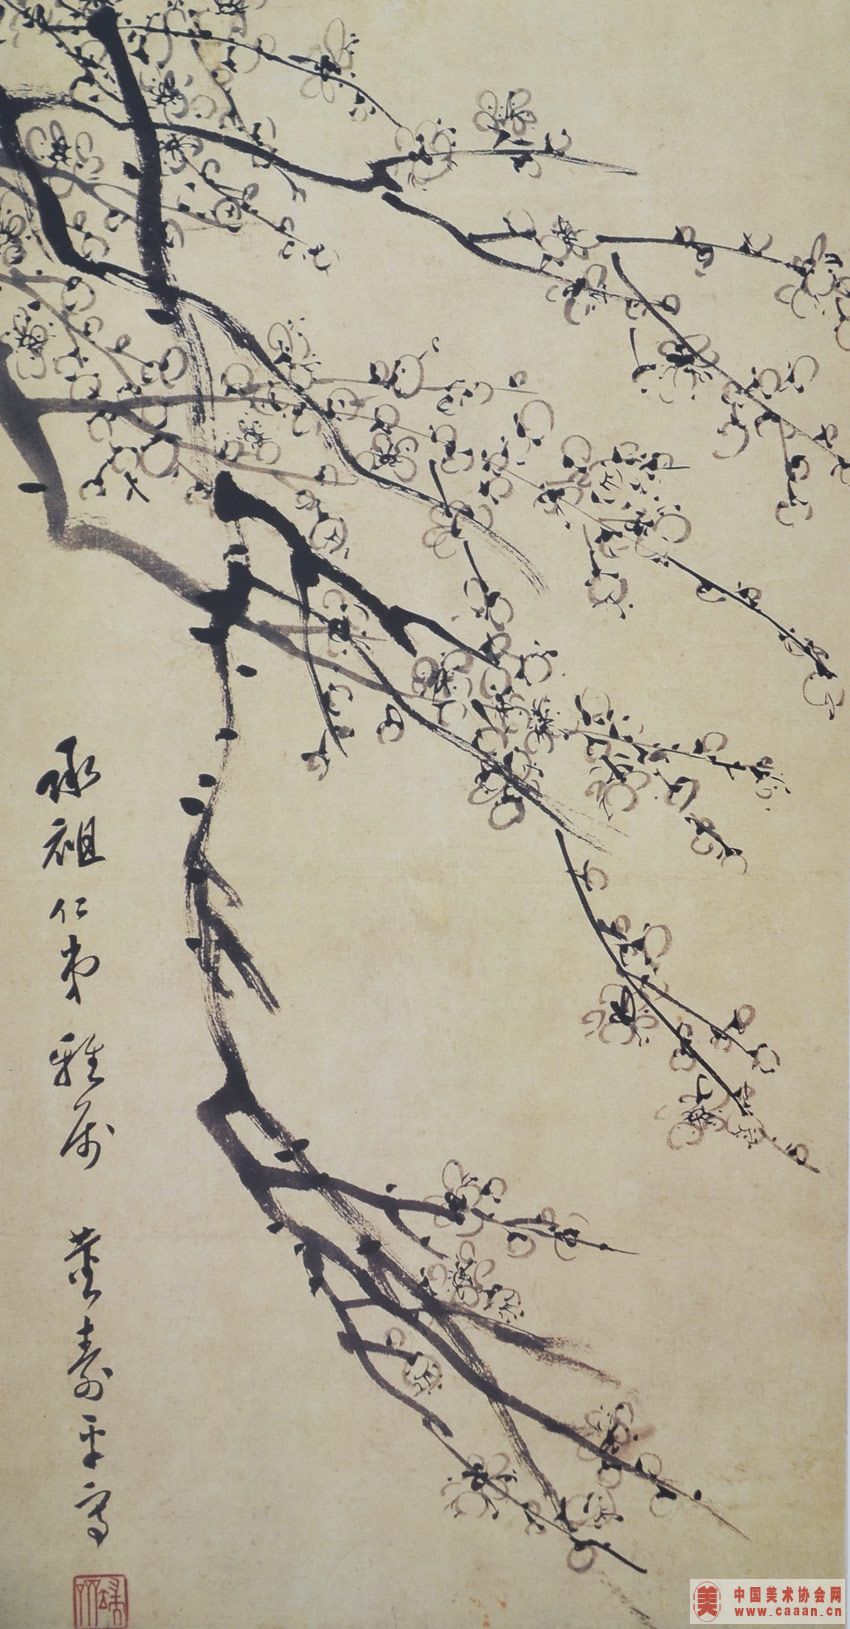 承祖仁弟雅属 董寿平写
中国美术协会网
www.caaan.cn